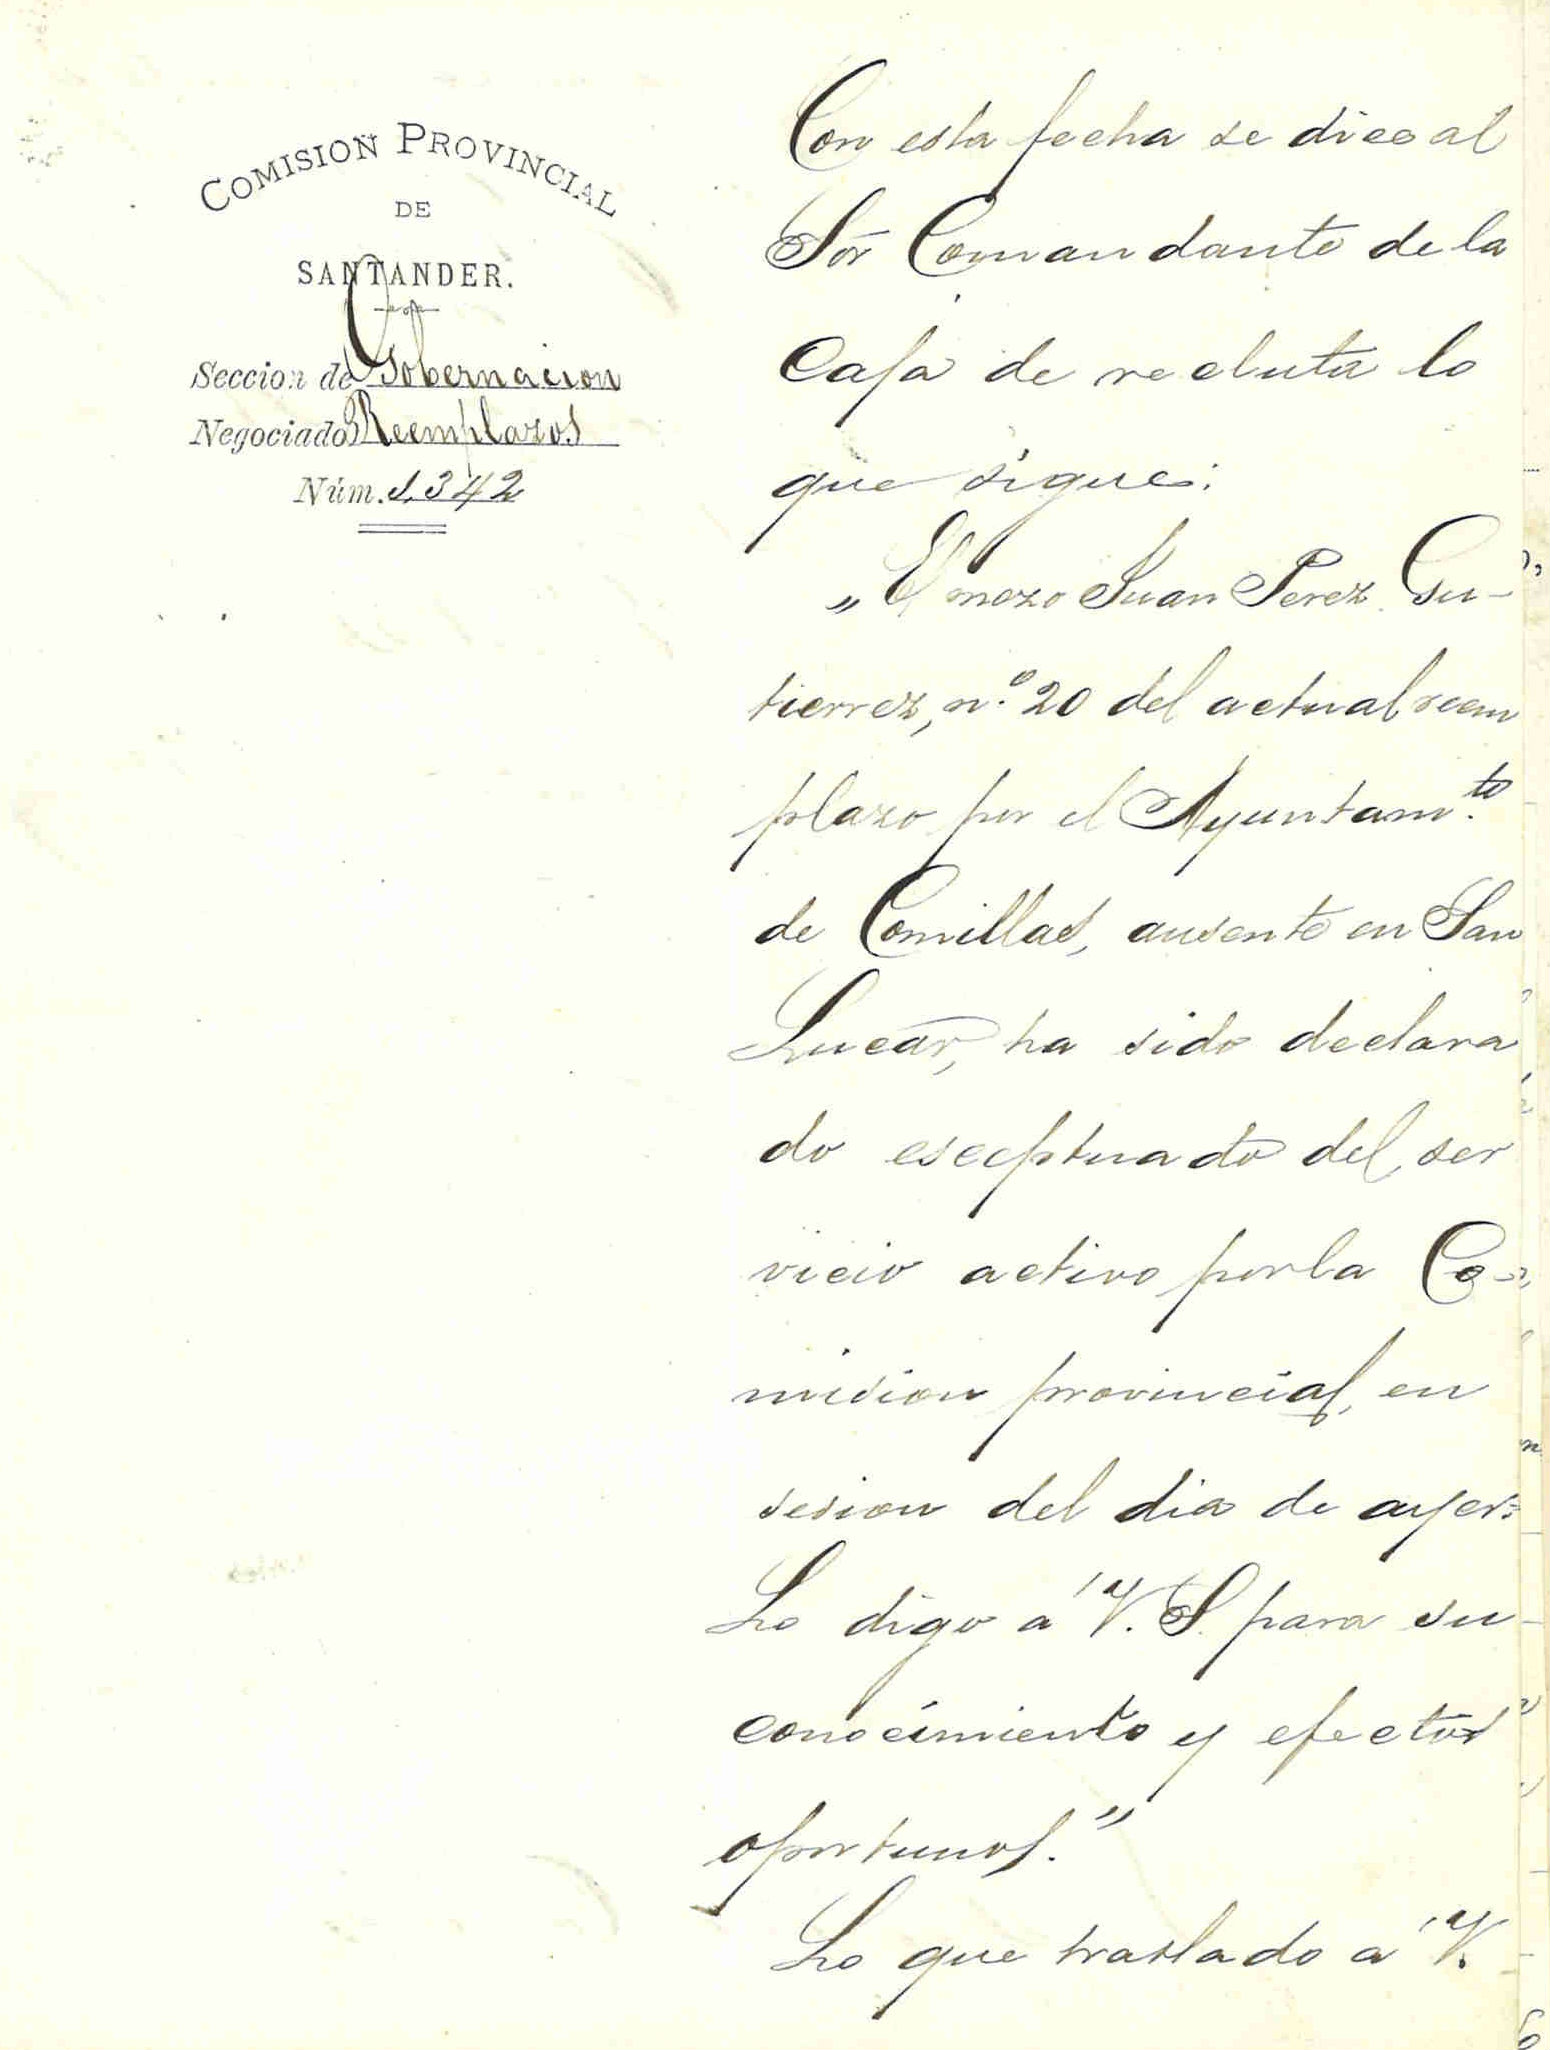 COMISION PROVINCIAL
DE
SANTANDER.
Seccion de Gobernacion
Negociado Reemplazos
Núm. 1.342
Con esta fecha se dice al
Sor Comandante de la
Caja de recluta lo
que sigue:
„El mozo Juan Perez Gu-
tierrez, n.º 20 del actual reem
plazo por el Ayuntam.to
de Comillas, ausente en San
Lucar, ha sido declara
do esceptuado del ser
vicio activo por la Co-
mision provincial, en
sesion del dia de ayer=
Lo digo á V. S. para su
conocimiento y efectos
oportunos.”
Lo que traslado á V.